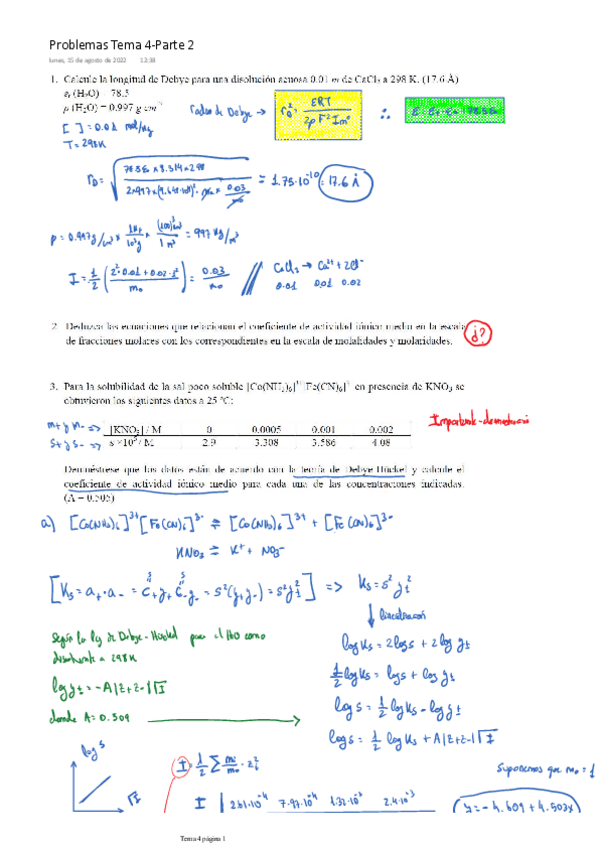 Problemas Tema 4-Parte 2
lunes, 15 de agosto de 2022 12:38
1. Calcule la longitud de Debye para una disolución acuosa 0.01 m de CaCl₂ a 298 K. (17.6 Å)
εᵣ (H₂O) = 78.5
ρ (H₂O) = 0.997 g cm⁻³
[ ] = 0.01 mol/kg
T = 298K
radio de Debye → r_D² = εRT / 2ρF²Im⁰ ∴
= 1.75·10⁻¹⁰ = 17.6 Å
ρ = 0.997 g/cm³ × 1kg/10³g × (100)³cm³/1m³ = 997 kg/m³
I = 1/2 (2²·0.01 + 0.02·1² / m₀) = 0.03/m₀ // CaCl₂ → Ca²⁺ + 2Cl⁻
0.01 0.01 0.02
2. Deduzca las ecuaciones que relacionan el coeficiente de actividad iónico medio en la escala
de fracciones molares con los correspondientes en la escala de molalidades y molaridades.
¿?
3. Para la solubilidad de la sal poco soluble [Co(NH₃)₆]³⁺[Fe(CN)₆]³⁻ en presencia de KNO₃ se
obtuvieron los siguientes datos a 25 ºC:
m+ y m- => [KNO₃] / M 0 0.0005 0.001 0.002
s+ y s- => s ×10⁵ / M 2.9 3.308 3.586 4.08
Demuéstrese que los datos están de acuerdo con la teoría de Debye Hückel y calcule el
coeficiente de actividad iónico medio para cada una de las concentraciones indicadas.
(A = 0.505)
a) [Co(NH₃)₆]³⁺[Fe(CN)₆]³⁻ ⇌ [Co(NH₃)₆]³⁺ + [Fe(CN)₆]³⁻
KNO₃ ⇌ K⁺ + NO₃⁻
[Ks = a₊·a₋ = C₊γ₊C₋γ₋ = s²(γ₊γ₋) = s²γ±²] => Ks = s²γ±²
log Ks = 2 log s + 2 log γ±
1/2 log Ks = log s + log γ±
log s = 1/2 log Ks - log γ±
log s = 1/2 log Ks + A|z+z-|√I
Según la ley de Debye-Hückel para el H₂O como
disolvente a 298K
log γ± = -A|z+z-|√I
donde A = 0.509
log s
√I
I = 1/2 Σ mᵢ/m₀ · zᵢ²
Suponemos que m₀ = 1
y = -4.609 + 4.503x
Tema 4 página 1